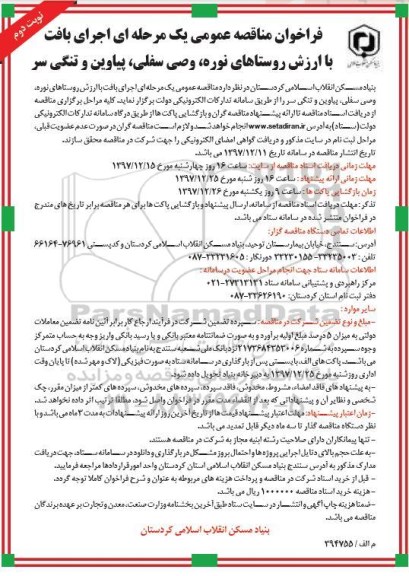 نوبت دوم
فراخوان مناقصه عمومی یک مرحله ای اجرای بافت
با ارزش روستاهای نوره، وصی سفلی، پیاوین و تنگی سر
بنیاد مسکن انقلاب اسلامی کردستان در نظر دارد مناقصه عمومی یک مرحله ای اجرای بافت با ارزش روستاهای نوره،
وصی سفلی، پیاوین و تنگی سر را از طریق سامانه تدارکات الکترونیکی دولت برگزار نماید. کلیه مراحل برگزاری مناقصه
از دریافت اسناد مناقصه تا ارائه پیشنهاد مناقصه گران و بازگشایی پاکت ها از طریق درگاه سامانه تدارکات الکترونیکی
دولت (ستاد) به آدرس www.setadiran.ir انجام خواهد شد و لازم است مناقصه گران در صورت عدم عضویت قبلی،
مراحل ثبت نام در سایت مذکور و دریافت گواهی امضای الکترونیکی را جهت شرکت در مناقصه محقق سازند.
تاریخ انتشار مناقصه در سامانه تاریخ ۱۳۹۷/۱۲/۱۱ می باشد.
مهلت زمانی دریافت اسناد مناقصه از سایت: ساعت ۱۶ روز چهارشنبه مورخ ۱۳۹۷/۱۲/۱۵
مهلت زمانی ارائه پیشنهاد: ساعت ۱۶ روز شنبه مورخ ۱۳۹۷/۱۲/۲۵
زمان بازگشایی پاکت ها: ساعت ۹ روز یکشنبه مورخ ۱۳۹۷/۱۲/۲۶
تذکر: مهلت دریافت اسناد مناقصه از سامانه، ارسال پیشنهاد و بازگشایی پاکت ها برای هر مناقصه برابر تاریخ های مندرج
در فراخوان منتشر شده در سامانه ستاد می باشد.
اطلاعات تماس دستگاه مناقصه گزار:
آدرس: سنندج، خیابان بیمارستان توحید، بنیاد مسکن انقلاب اسلامی کردستان و کدپستی ۷۶۹۶۱-۶۶۱۶۴
تلفن: ۳۳۲۳۵۰۰۳-۳۳۲۳۰۱۵۵ دورنگار: ۳۳۲۳۱۶۰۵-۰۸۷
اطلاعات سامانه ستاد جهت انجام مراحل عضویت در سامانه:
مرکز راهبردی و پشتیبانی سامانه ستاد ۲۷۳۱۳۱۳۱-۰۲۱
دفتر ثبت نام استان کردستان: ۳۳۶۲۶۱۹۰-۰۸۷
سایر موارد:
-مبلغ و نوع تضمین شرکت در مناقصه: سپرده تضمین شرکت در فرآیند ارجاع کار برابر آئین نامه تضمین معاملات
دولتی به میزان ۵ درصد مبلغ اولیه برآورد و به صورت ضمانتنامه معتبر بانکی و یا رسید بانکی واریز وجه به حساب متمرکز
می باشد. پاکت های الف بایستی پس از بارگذاری در سامانه ستاد به صورت فیزیکی (لاک و مهر شده) تا پایان وقت
اداری روز شنبه مورخ ۱۳۹۷/۱۲/۲۵ به دبیرخانه بنیاد تحویل داده شود.
-به پیشنهاد های فاقد امضاء، مشروط، مخدوش، فاقد سپرده، سپرده های مخدوش، سپرده های کمتر از میزان مقرر، چک
شخصی و نظایر آن و پیشنهاداتی که بعد از انقضاء مدت مقرر در فراخوان واصل شود، مطلقا ترتیب اثر داده نخواهد شد.
-زمان اعتبار پیشنهاد: مهلت اعتبار پیشنهاد قیمت ها از تاریخ آخرین روز ارائه پیشنهادات به مدت ۳ ماه می باشد و با
نظر دستگاه مناقصه گذار تا سه ماه دیگر قابل تمدید می باشد.
- تنها پیمانکاران دارای صلاحیت رشته ابنیه مجاز به شرکت در مناقصه هستند.
-به علت حجم بالای فایل اجرایی پروژه ها و احتمال بروز مشکل در بارگذاری و دانلود در سامانه ستاد، جهت دریافت
مدارک مذکور به آدرس سنندج بنیاد مسکن انقلاب اسلامی استان کردستان واحد امور قراردادها مراجعه فرمایید.
- قبل از خرید اسناد شرکت در مناقصه و پرداخت هزینه های مربوطه به عنوان و شرح فراخوان کاملا توجه گردد.
- هزینه خرید اسناد مناقصه ۱۰۰۰۰۰۰ ریال می باشد.
-ضمنا هزینه چاپ آگهی و انتشار در سایت ستاد طبق آخرین بخشنامه وزارت صنعت، معدن و تجارت بر عهده برندگان
مناقصه می باشد.
بنیاد مسکن انقلاب اسلامی کردستان
م الف / ۳۹۴۷۵۵